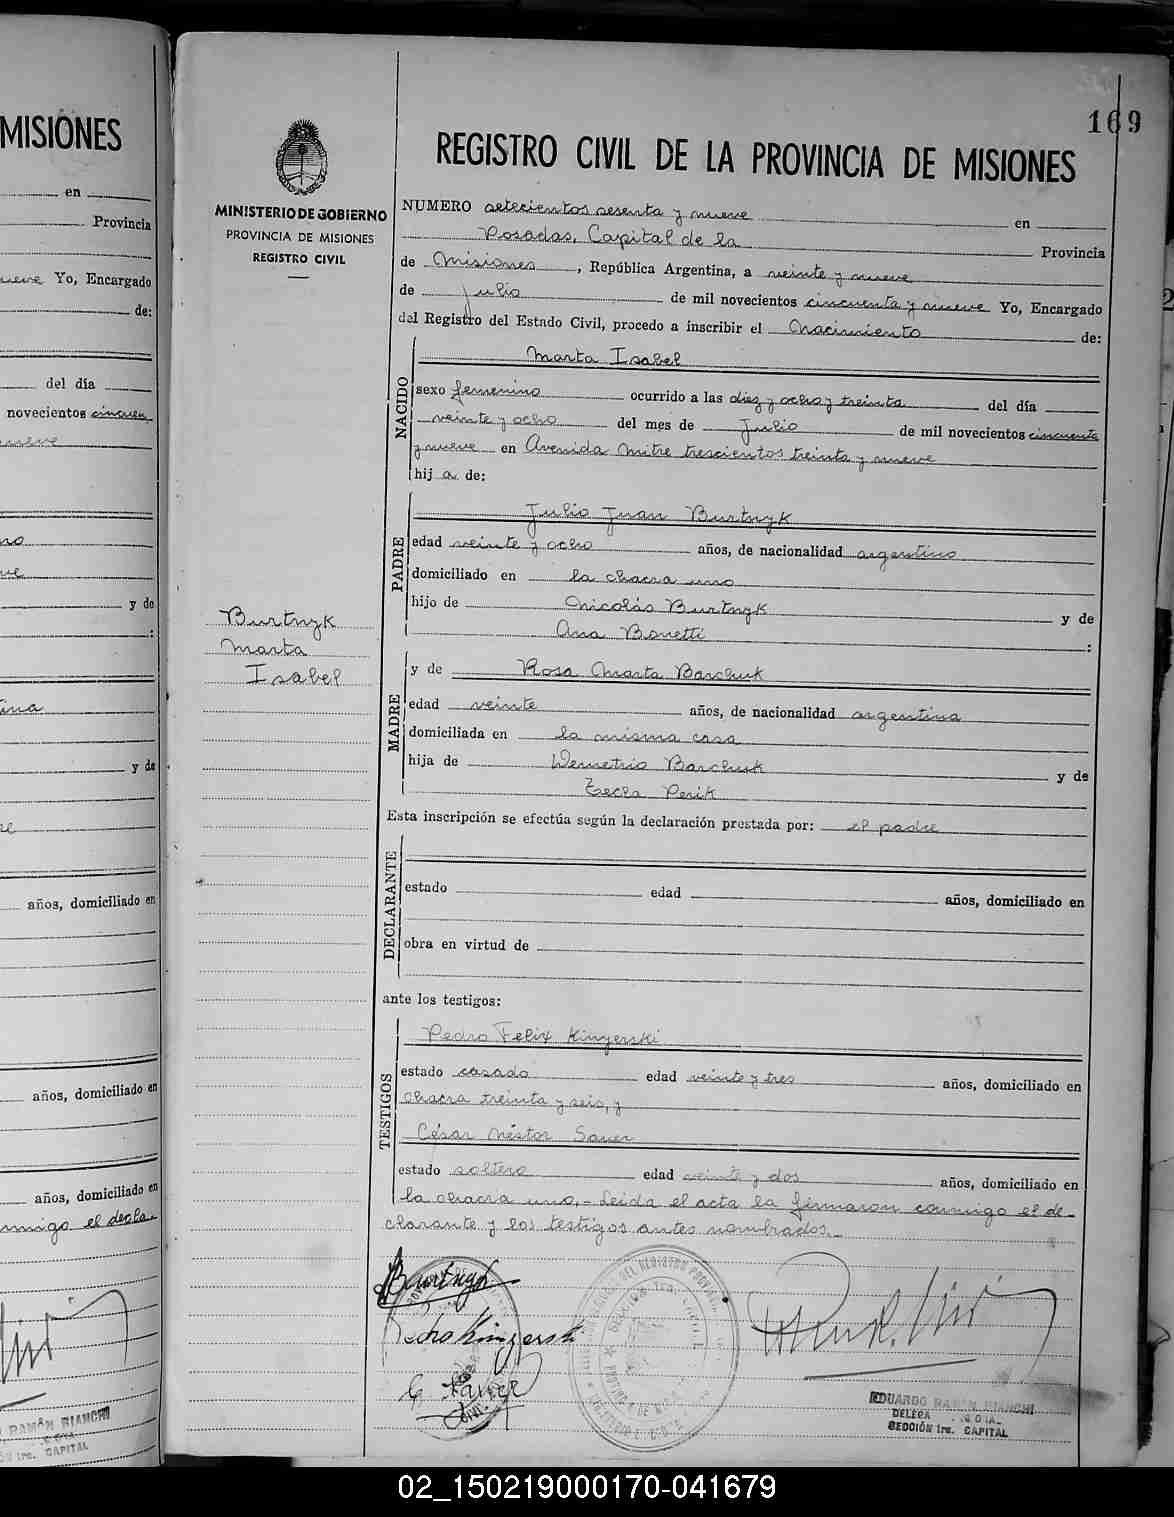 MISIONES
en
Provincia
nueve Yo, Encargado
de:
del día
novecientos cincuen
nueve
y de
:
y de
años, domiciliado en
años, domiciliado en
años, domiciliado en
conmigo el decla-
RAMÓN BIANCHI
1ra. CAPITAL
169
REGISTRO CIVIL DE LA PROVINCIA DE MISIONES
MINISTERIO DE GOBIERNO
PROVINCIA DE MISIONES
REGISTRO CIVIL
Burtnyk
Marta
Isabel
NUMERO setecientos sesenta y nueve en
Posadas, Capital de la Provincia
de Misiones, República Argentina, a veinte y nueve
de Julio de mil novecientos cincuenta y nueve Yo, Encargado
del Registro del Estado Civil, procedo a inscribir el Nacimiento de:
NACIDO
Marta Isabel
sexo femenino ocurrido a las diez y ocho y treinta del día
veinte y ocho del mes de Julio de mil novecientos cincuenta
y nueve en Avenida Mitre trescientos treinta y nueve
hij a de:
PADRE
Julio Juan Burtnyk
edad veinte y ocho años, de nacionalidad argentino
domiciliado en la chacra uno
hijo de Nicolás Burtnyk y de
Ana Bonetti :
MADRE
y de Rosa Marta Barchuk
edad veinte años, de nacionalidad argentina
domiciliada en la misma casa
hija de Demetrio Barchuk y de
Tecla Perik
Esta inscripción se efectúa según la declaración prestada por: el padre
DECLARANTE
estado edad años, domiciliado en
obra en virtud de
ante los testigos:
TESTIGOS
Pedro Felix Kinzerski
estado casado edad veinte y tres años, domiciliado en
chacra treinta y seis, y
César Néstor Sauer
estado soltero edad veinte y dos años, domiciliado en
la chacra uno.- Leída el acta la firmaron conmigo el de-
clarante y los testigos antes nombrados.-
Burtnyk
Pedro Kinzerski
C. Sauer
EDUARDO RAMÓN BIANCHI
SECCIÓN 1ra. CAPITAL
02_150219000170-041679